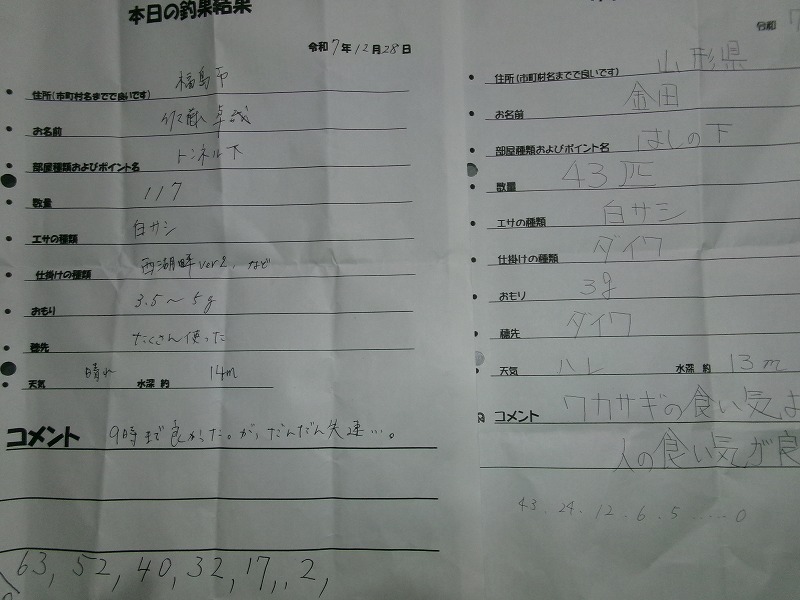 本日の釣果結果
令和7年12月28日
住所(市町村名までで良いです) 福島市
お名前 佐藤 卓誠
部屋種類およびポイント名 トンネル下
数量 117
エサの種類 白サシ
仕掛けの種類 西湖畔ver2, など
おもり 3.5〜5g
穂先 たくさん使った
天気 晴れ 水深 約 14m
コメント 9時まで良かった。が、だんだん失速…。
63, 52, 40, 32, 17,, 2,
令和 7
住所(市町村名までで良いです) 山形県
お名前 金田
部屋種類およびポイント名 はしの下
数量 43匹
エサの種類 白サシ
仕掛けの種類 ダイワ
おもり 3g
穂先 ダイワ
天気 ハレ 水深 約 13m
コメント ワカサギの食い気よ
人の食い気が良
43.24.12.6.5......0